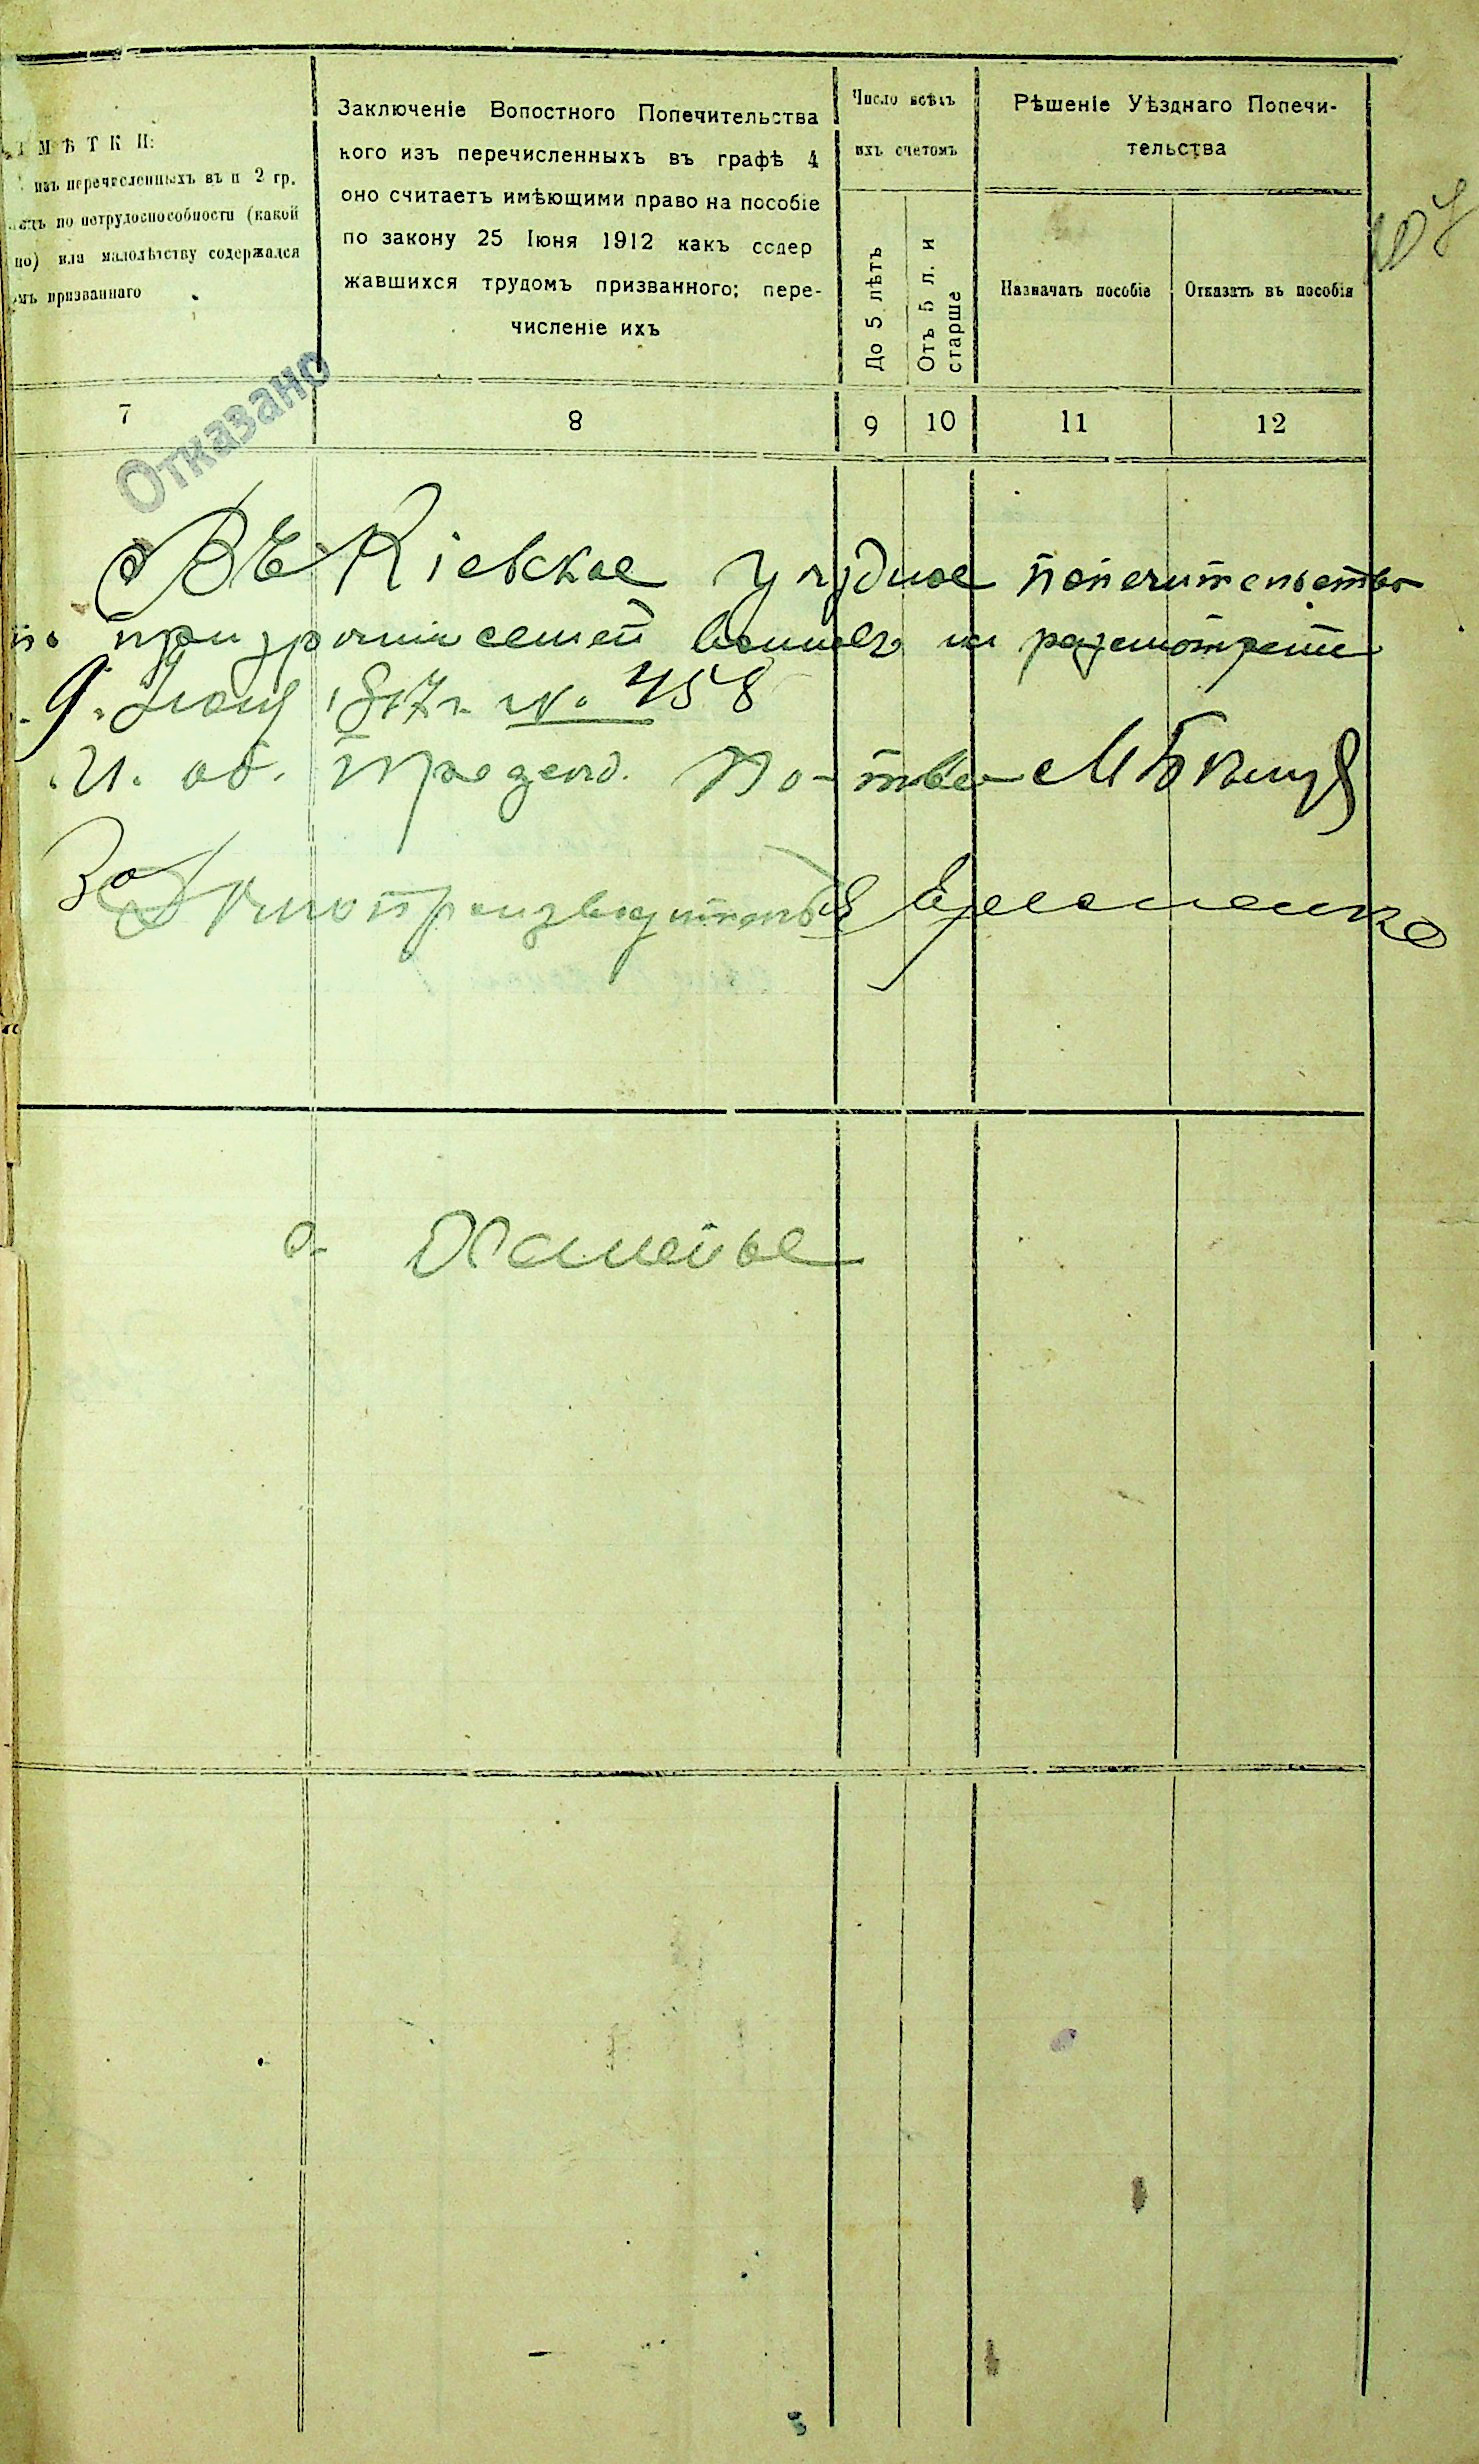 ТМѢТКИ:
изъ перечисленныхъ въ п 2 гр.
по нетрудоспособности (какой
но) или малолѣтству содержался
призваннаго
Заключеніе Вопостного Попечительства
кого изъ перечисленныхъ въ графѣ 4
оно считаетъ имѣющими право на пособіе
по закону 25 Іюня 1912 какъ содер
жавшихся трудомъ призванного; пере-
численіе ихъ
Число всѣхъ
ихъ счетомъ
До 5 лѣтъ
Отъ 5 л. и
старше
Рѣшеніе Уѣзднаго Попечи-
тельства
Назначать пособіе
Отказать въ пособія
107
Отказано
7
8
9
10
11
12
Въ Кіевское уѣздное попечительство
по призрѣнію семей воиновъ на разсмотреніе
9 1917 г. №. 458
И. об. Предсѣд. По-тва
За Дѣлопроизводителя Ерёменко